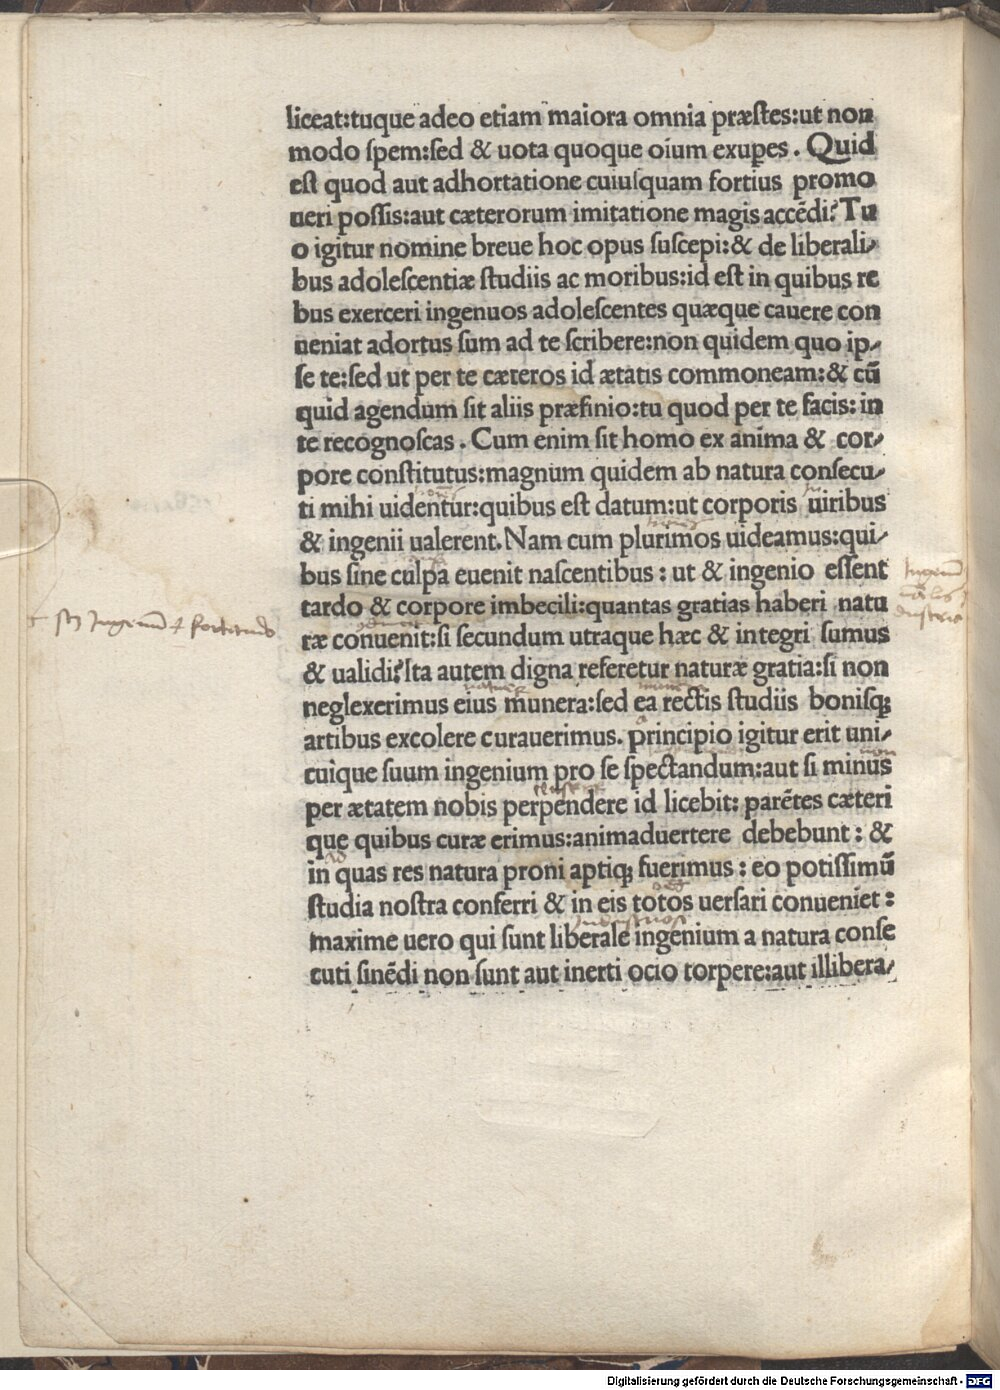 liceat:tuque adeo etiam maiora omnia præſtes:ut non
modo ſpem:ſed & uota quoque oīum exupes . Quid
eſt quod aut adhortatione cuiuſquam fortius promo
ueri poſſis:aut cæterorum imitatione magis accēdi? Tu
o igitur nomine breue hoc opus ſuſcepi:& de liberali-
bus adoleſcentiæ ſtudiis ac moribus:id eſt in quibus re
bus exerceri ingenuos adoleſcentes quæque cauere con
ueniat adortus ſum ad te ſcribere:non quidem quo ip-
ſe te:ſed ut per te cæteros id ætatis commoneam:& cū
quid agendum ſit aliis præfinio:tu quod per te facis: in
te recognoſcas . Cum enim ſit homo ex anima & cor-
pore conſtitutus:magnum quidem ab natura conſecu-
ti mihi uidentur:quibus eſt datum:ut corporis uiribus
& ingenii ualerent. Nam cum plurimos uideamus:qui-
bus ſine culpa euenit naſcentibus : ut & ingenio eſſent
tardo & corpore imbecili:quantas gratias haberi natu
ræ conuenit:ſi ſecundum utraque hæc & integri ſumus
& ualidi? Ita autem digna referetur naturæ gratia:ſi non
neglexerimus eius munera:ſed ea rectis ſtudiis boniſqꝫ
artibus excolere curauerimus. principio igitur erit uni-
cuique ſuum ingenium pro ſe ſpectandum:aut ſi minus
per ætatem nobis perpendere id licebit: parētes cæteri
que quibus curæ erimus:animaduertere debebunt : &
in quas res natura proni aptiqꝫ fuerimus : eo potiſſimū
ſtudia noſtra conferri & in eis totos uerſari conueniet :
maxime uero qui ſunt liberale ingenium a natura conſe
cuti ſinēdi non ſunt aut inerti ocio torpere:aut illibera-
Digitalisierung gefördert durch die Deutsche Forschungsgemeinschaft - DFG